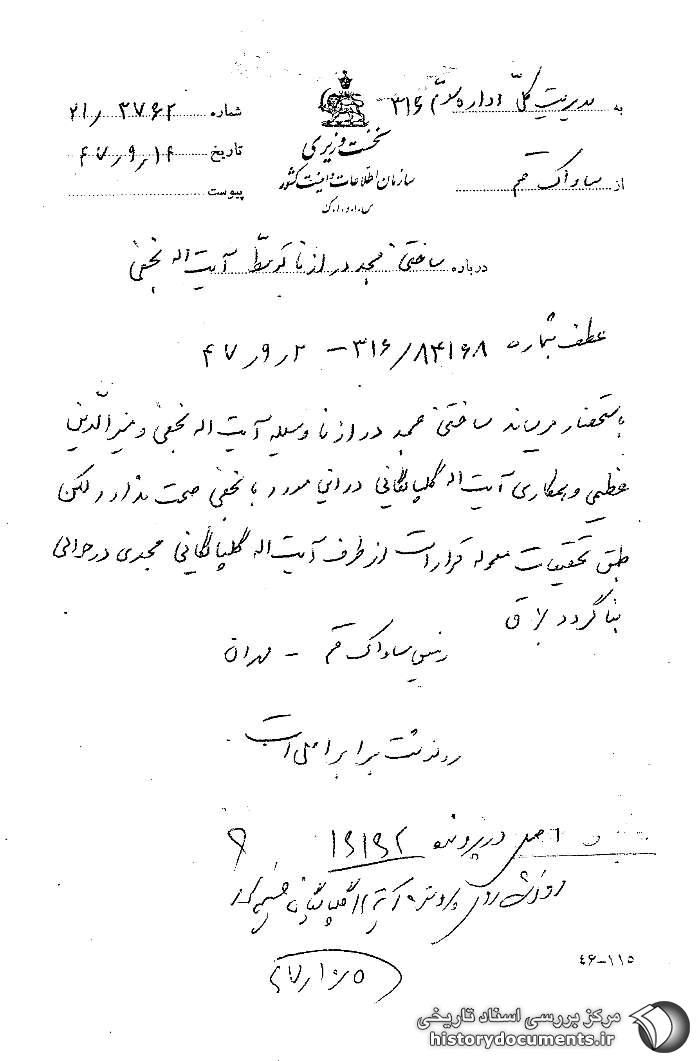 به مدیریت کل اداره سوم ۳۱۶
شماره ۲۱ر ۳۷۶۲
نخست وزیری
تاریخ ۴۷ر۹ر۱۴
از ساواک قم
سازمان اطلاعات و امنیت کشور
پیوست
س.ا.و.ا.ک
درباره ساختن مسجد در ازنا توسط آیت اله نجفی
عطف بشماره ۳۱۶/۸۴۱۶۸ – ۴۷ر۹ر۲
باستحضار میرساند ساختن مسجد در ازنا وسیله آیت اله نجفی و منیرالدین
عظیمی و همکاری آیت اله گلپایگانی در این مورد با نجفی صحت ندارد لکن
طبق تحقیقات معموله قرار است از طرف آیت اله گلپایگانی مسجدی در حوالی
بنا گردد
رئیس ساواک قم – مهران
رونوشت برابر اصل است
اصل در پرونده ۱۶۱۶۲
رونوشت روی پرونده آیت اله گلپایگانی ضمیمه
۴۷ر۱۰ر۵
۴۶–۱۱۵
مرکز بررسی اسناد تاریخی
historydocuments.ir